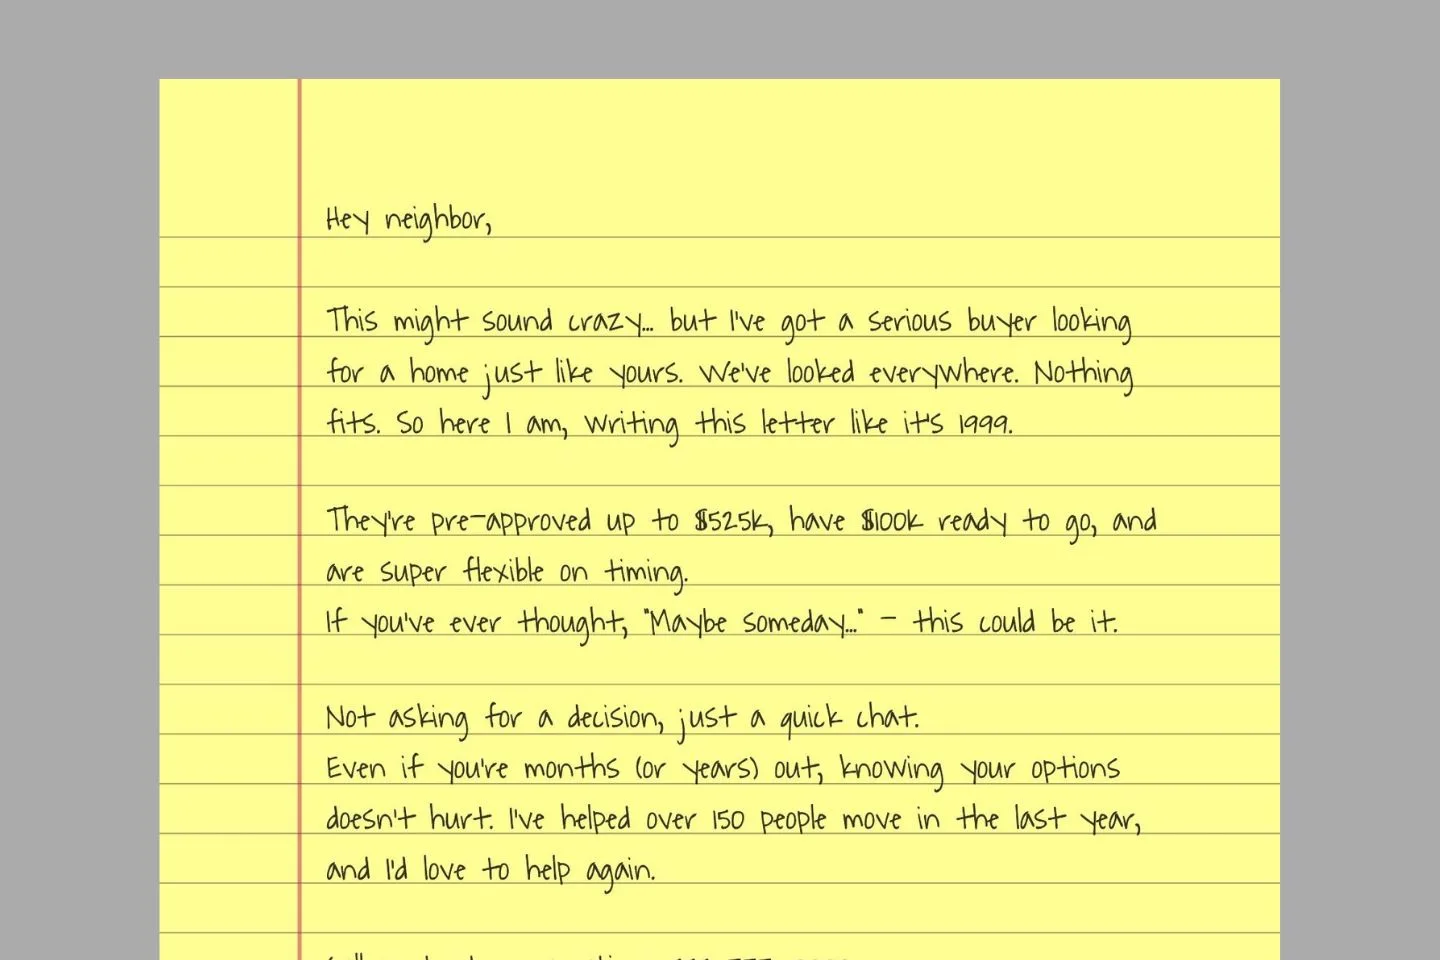 Hey neighbor,
This might sound crazy... but I've got a serious buyer looking
for a home just like yours. We've looked everywhere. Nothing
fits. So here I am, writing this letter like it's 1999.
They're pre-approved up to $525k, have $100k ready to go, and
are super flexible on timing.
If you've ever thought, "Maybe someday..." - this could be it.
Not asking for a decision, just a quick chat.
Even if you're months (or years) out, knowing your options
doesn't hurt. I've helped over 150 people move in the last year,
and I'd love to help again.